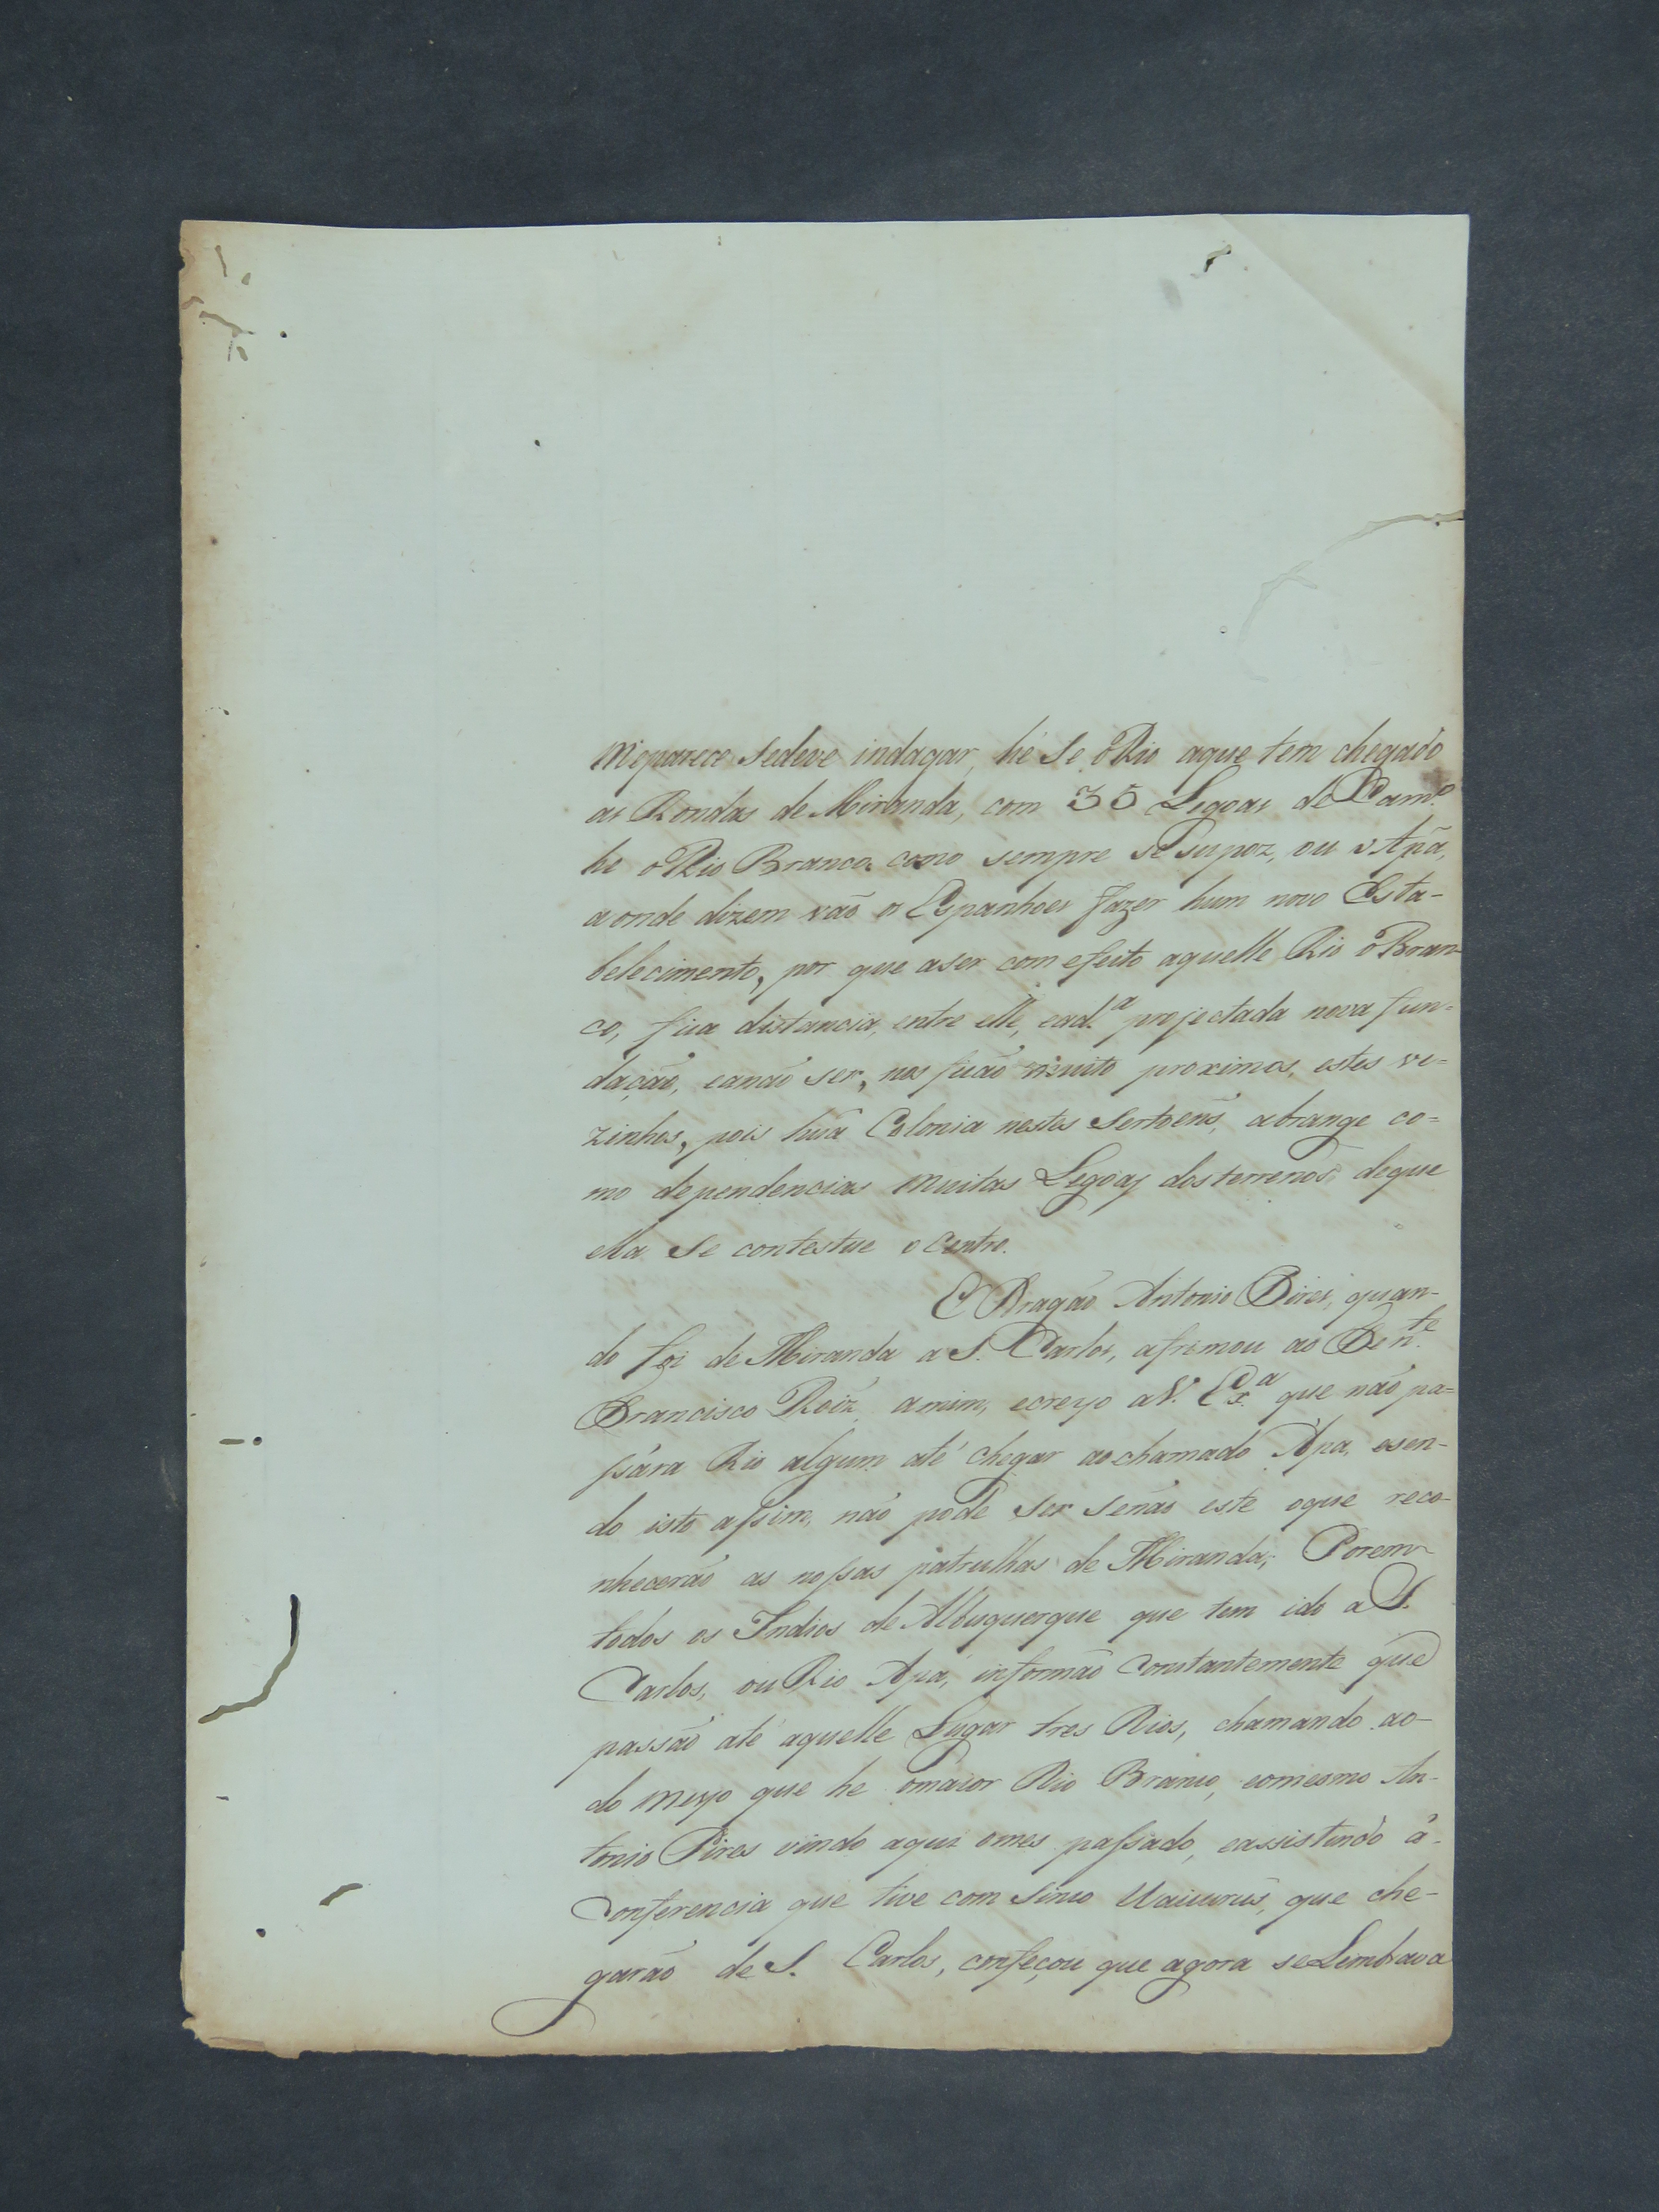 Meparece sedeve indagar, hé se o Rio aque tem chegado
as Rondas de Miranda, com 35 Legoas de Camº
he o Rio Branco como sempre se supoz, ou o Apâ,
aonde dizem vaõ os Espanhoes fazer hum novo Esta-
belecimento, por que aser com efeito aquelle Rio o Bran-
co, fica distancia, entre elle, ead.ª projectada nova fun-
daçaõ, eanaõ ser, nos ficaõ muito proximos, estes ve-
zinhos, pois hũa Colonia nestes Sertoens, abrange co-
mo dependencias muitas Legoas dos terrenos, deque
ella se contestue o centro.
O Dragaõ Antonio Pires, quan-
do foi de Miranda a S. Carlos, afirmou ao Ten.te
Francisco Roiz, amim, ecreyo aV. Ex.ª que naõ pa-
ssára Rio algum até chegar aochamado Apa, esen-
do isto assim, naõ pode ser senaõ este oque reco-
nheceraõ as nossas patrulhas de Miranda; Porem
todos os Indios de Albuquerque que tem ido a S.
Carlos, ou Rio Apá, informaõ constantemente que
passaõ até aquelle Lugar tres Rios, chamando ao-
do meyo que he omaior Rio Branco, eomesmo An-
tonio Pires vindo aqui omes passado, eassistindo á-
Conferencia que tive com sinco Uaicurús, que che-
garaõ de S. Carlos, confeçou que agora se Lembrava